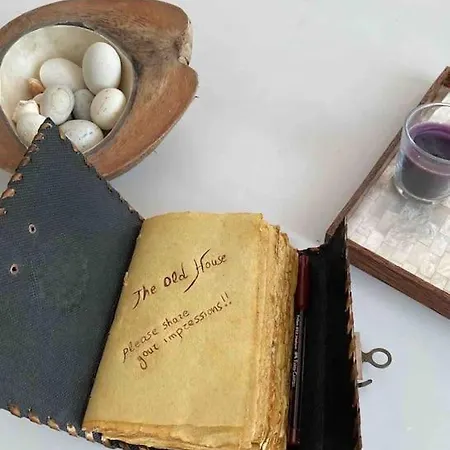 The Old House
please share
your impressions!!